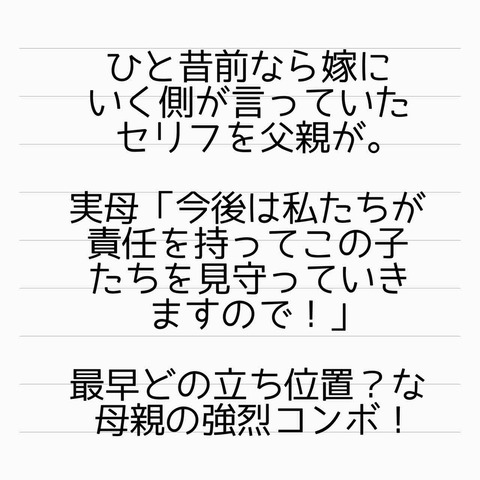 ひと昔前なら嫁に
いく側が言っていた
セリフを父親が。
実母「今後は私たちが
責任を持ってこの子
たちを見守っていき
ますので！」
最早どの立ち位置？な
母親の強烈コンボ！